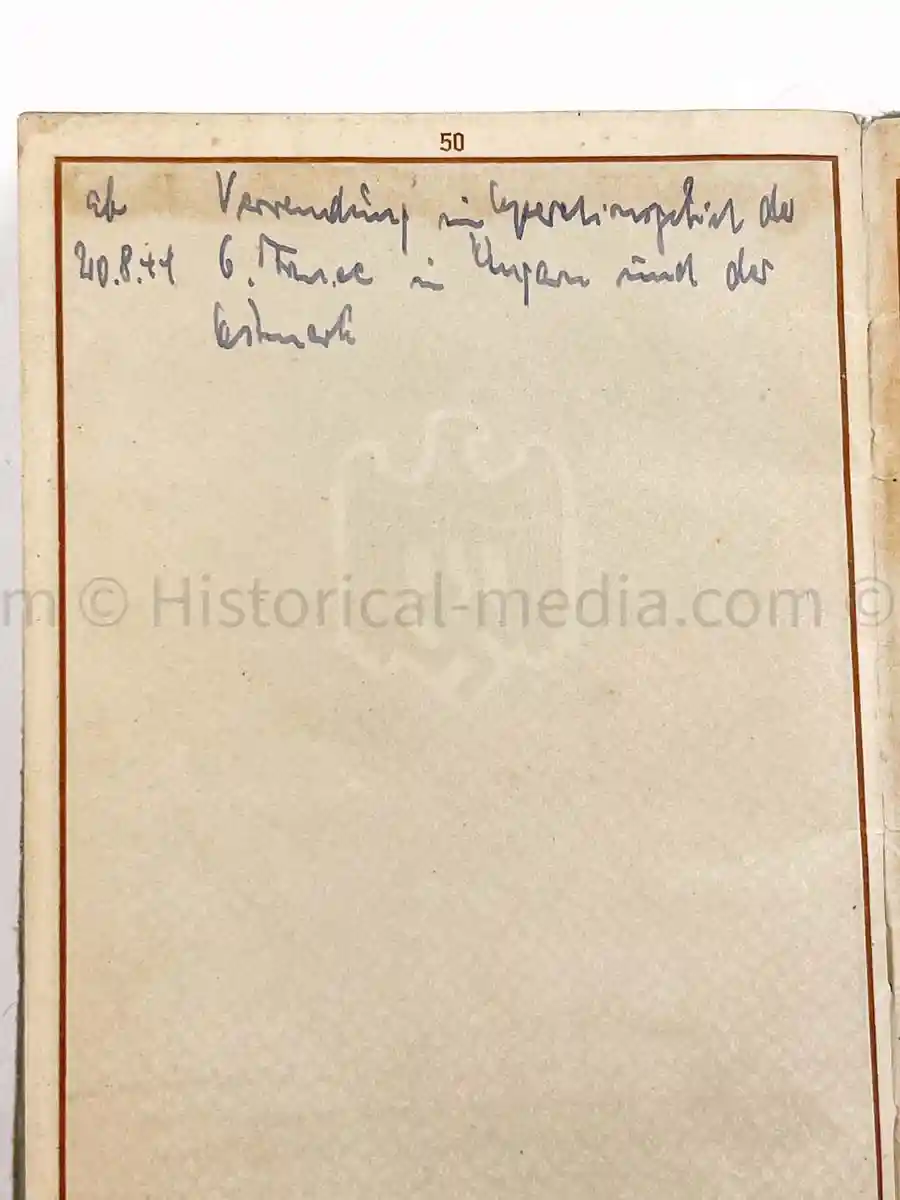 50
ab Verwendung im Operationsgebiet der
20.8.44 6. Armee in Ungarn und der
Ostmark
m © Historical-media.com ©